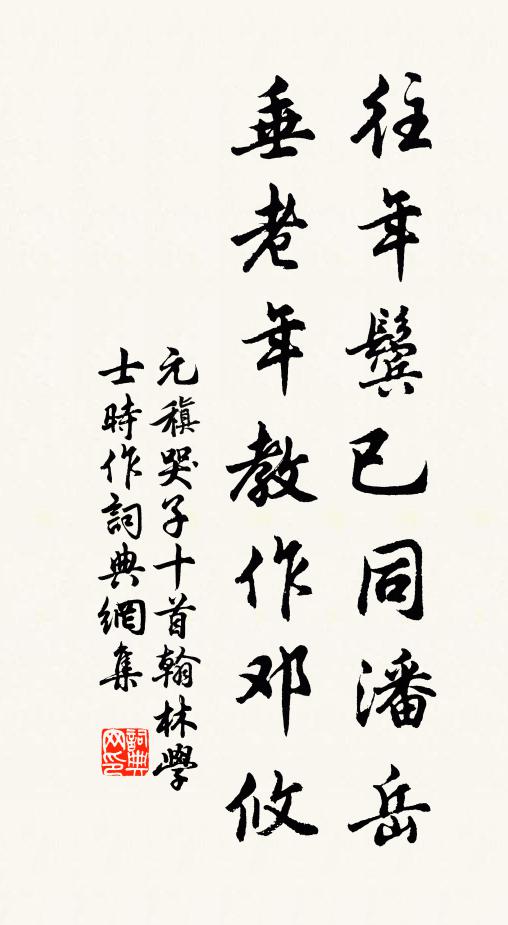 往年鬢已同潘岳
垂老年教作邓攸
元稹哭子十首翰林學
士時作詞典網集
詞典网印